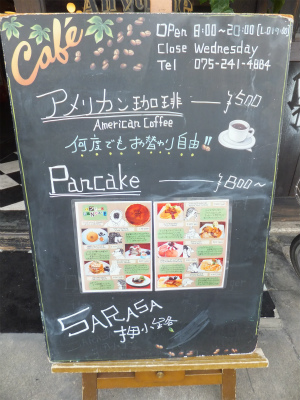 Café
Open 8:00~20:00 (L.O 19:00)
Close Wednesday
Tel 075-241-4884
アメリカン珈琲 ¥500
American Coffee
何度でもお替わり自由!!
Pancake ¥800~
SARASA
押小路